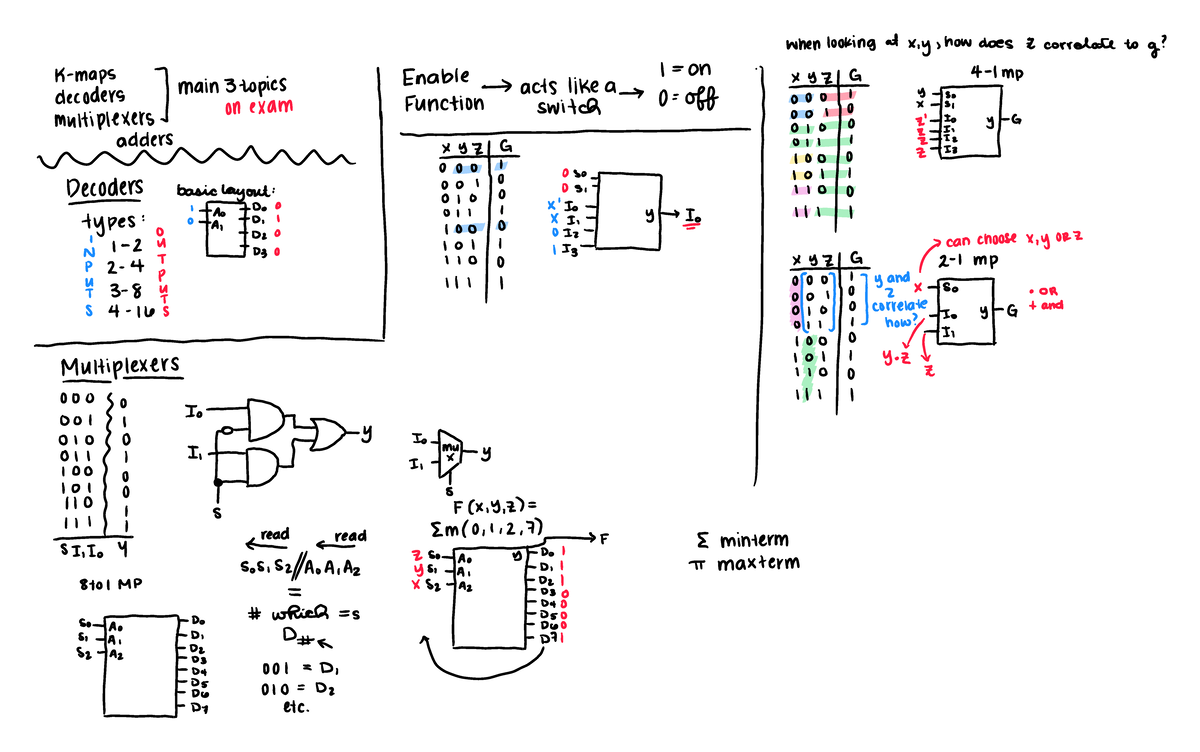 K-maps
decoders
multiplexers
adders
main 3 topics
on exam
Decoders
types:
INPUTS
OUTPUTS
1-2
2-4
3-8
4-16
basic layout:
1 A0 D0 0
0 A1 D1 1
D2 0
D3 0
Enable
Function
→ acts like a →
switch
1 = on
0 = off
x y z G
0 0 0 1
0 0 1 0
0 1 0 0
0 1 1 0
1 0 0 0
1 0 1 1
1 1 0 0
1 1 1 1
0 S0
0 S1
x' I0
x I1
0 I2
1 I3
y → I0
when looking at x,y, how does z correlate to g?
x y z G
0 0 0 1
0 0 1 0
0 1 0 0
0 1 1 0
1 0 0 0
1 0 1 0
1 1 0 0
1 1 1 1
4-1 mp
y S0
x S1
z' I0
z I1
z I2
z I3
y G
x y z G
0 0 0 1
0 0 1 0
0 1 0 0
0 1 1 1
1 0 0 0
1 0 1 1
1 1 0 0
1 1 1 1
y and
z
correlate
how?
can choose x,y OR z
2-1 mp
x S0
I0
I1
y G
y·z
z
· OR
+ and
Multiplexers
0 0 0 0
0 0 1 1
0 1 0 0
0 1 1 1
1 0 0 0
1 0 1 0
1 1 0 1
1 1 1 1
S I1 I0 Y
I0
I1
S
y
I0
I1
mu
x
y
S
8 to 1 MP
S0 A0
S1 A1
S2 A2
D0
D1
D2
D3
D4
D5
D6
D7
read read
S0 S1 S2 // A0 A1 A2
=
# which = s
D#
001 = D1
010 = D2
etc.
F(x,y,z)=
Σm(0,1,2,7)
z S0 A0
y S1 A1
x S2 A2
y
→ F
D0 1
D1 1
D2 1
D3 0
D4 0
D5 0
D6 0
D7 1
Σ minterm
π maxterm